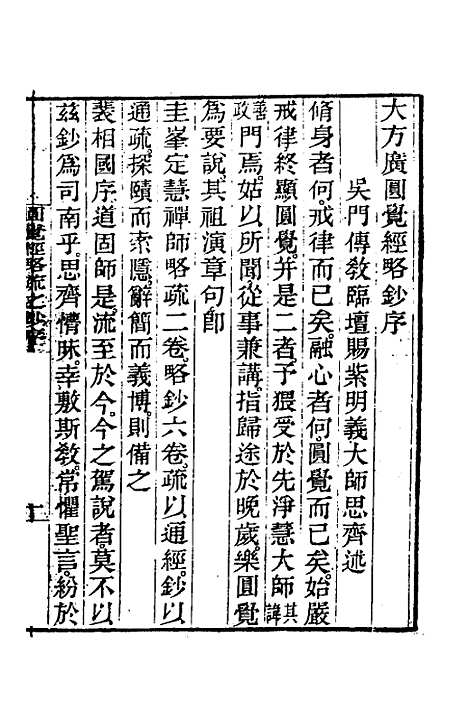 大方廣圓覺經略鈔序
吳門傳教臨壇賜紫明義大師思齊述
脩身者何。戒律而已矣。融心者何。圓覺而已矣。始嚴
戒律。終顯圓覺。并是二者。予猥受於先淨慧大師其諱
善政門焉。姑以所聞。從事兼講。指歸途於晚歲。樂圓覺
為要說。其祖演章句。即
圭峯定慧禪師略疏二卷。略鈔六卷。疏以通經。鈔以
通疏。探賾而索隱。辭簡而義博。則備之
裴相國序。道固師是。流至於今。今之駕說者。莫不以
茲鈔為司南乎。思齊懵昧。幸敷斯教。常懼聖言。紛於
圓覺經略疏之鈔序